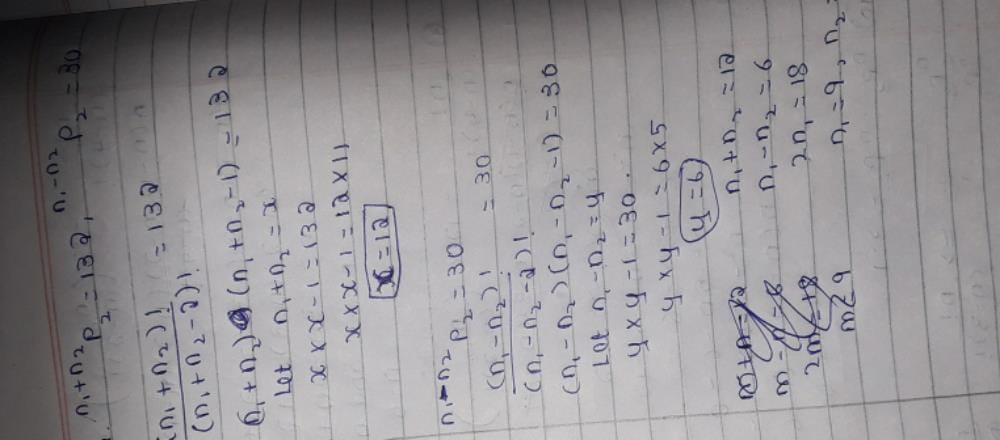 n₁+n₂ P₂ = 132, n₁-n₂ P₂ = 30
(n₁+n₂)! / (n₁+n₂-2)! = 132
(n₁+n₂) (n₁+n₂-1) = 132
Let n₁+n₂ = x
x × x-1 = 132
x × x-1 = 12 × 11
x = 12
n₁-n₂ P₂ = 30
(n₁-n₂)! / (n₁-n₂-2)! = 30
(n₁-n₂)(n₁-n₂-1) = 30
Let n₁-n₂ = y
y × y-1 = 30.
y × y-1 = 6 × 5
y = 6
n₁+n₂ = 12
n₁-n₂ = 6
2n₁ = 18
n₁ = 9, n₂ =